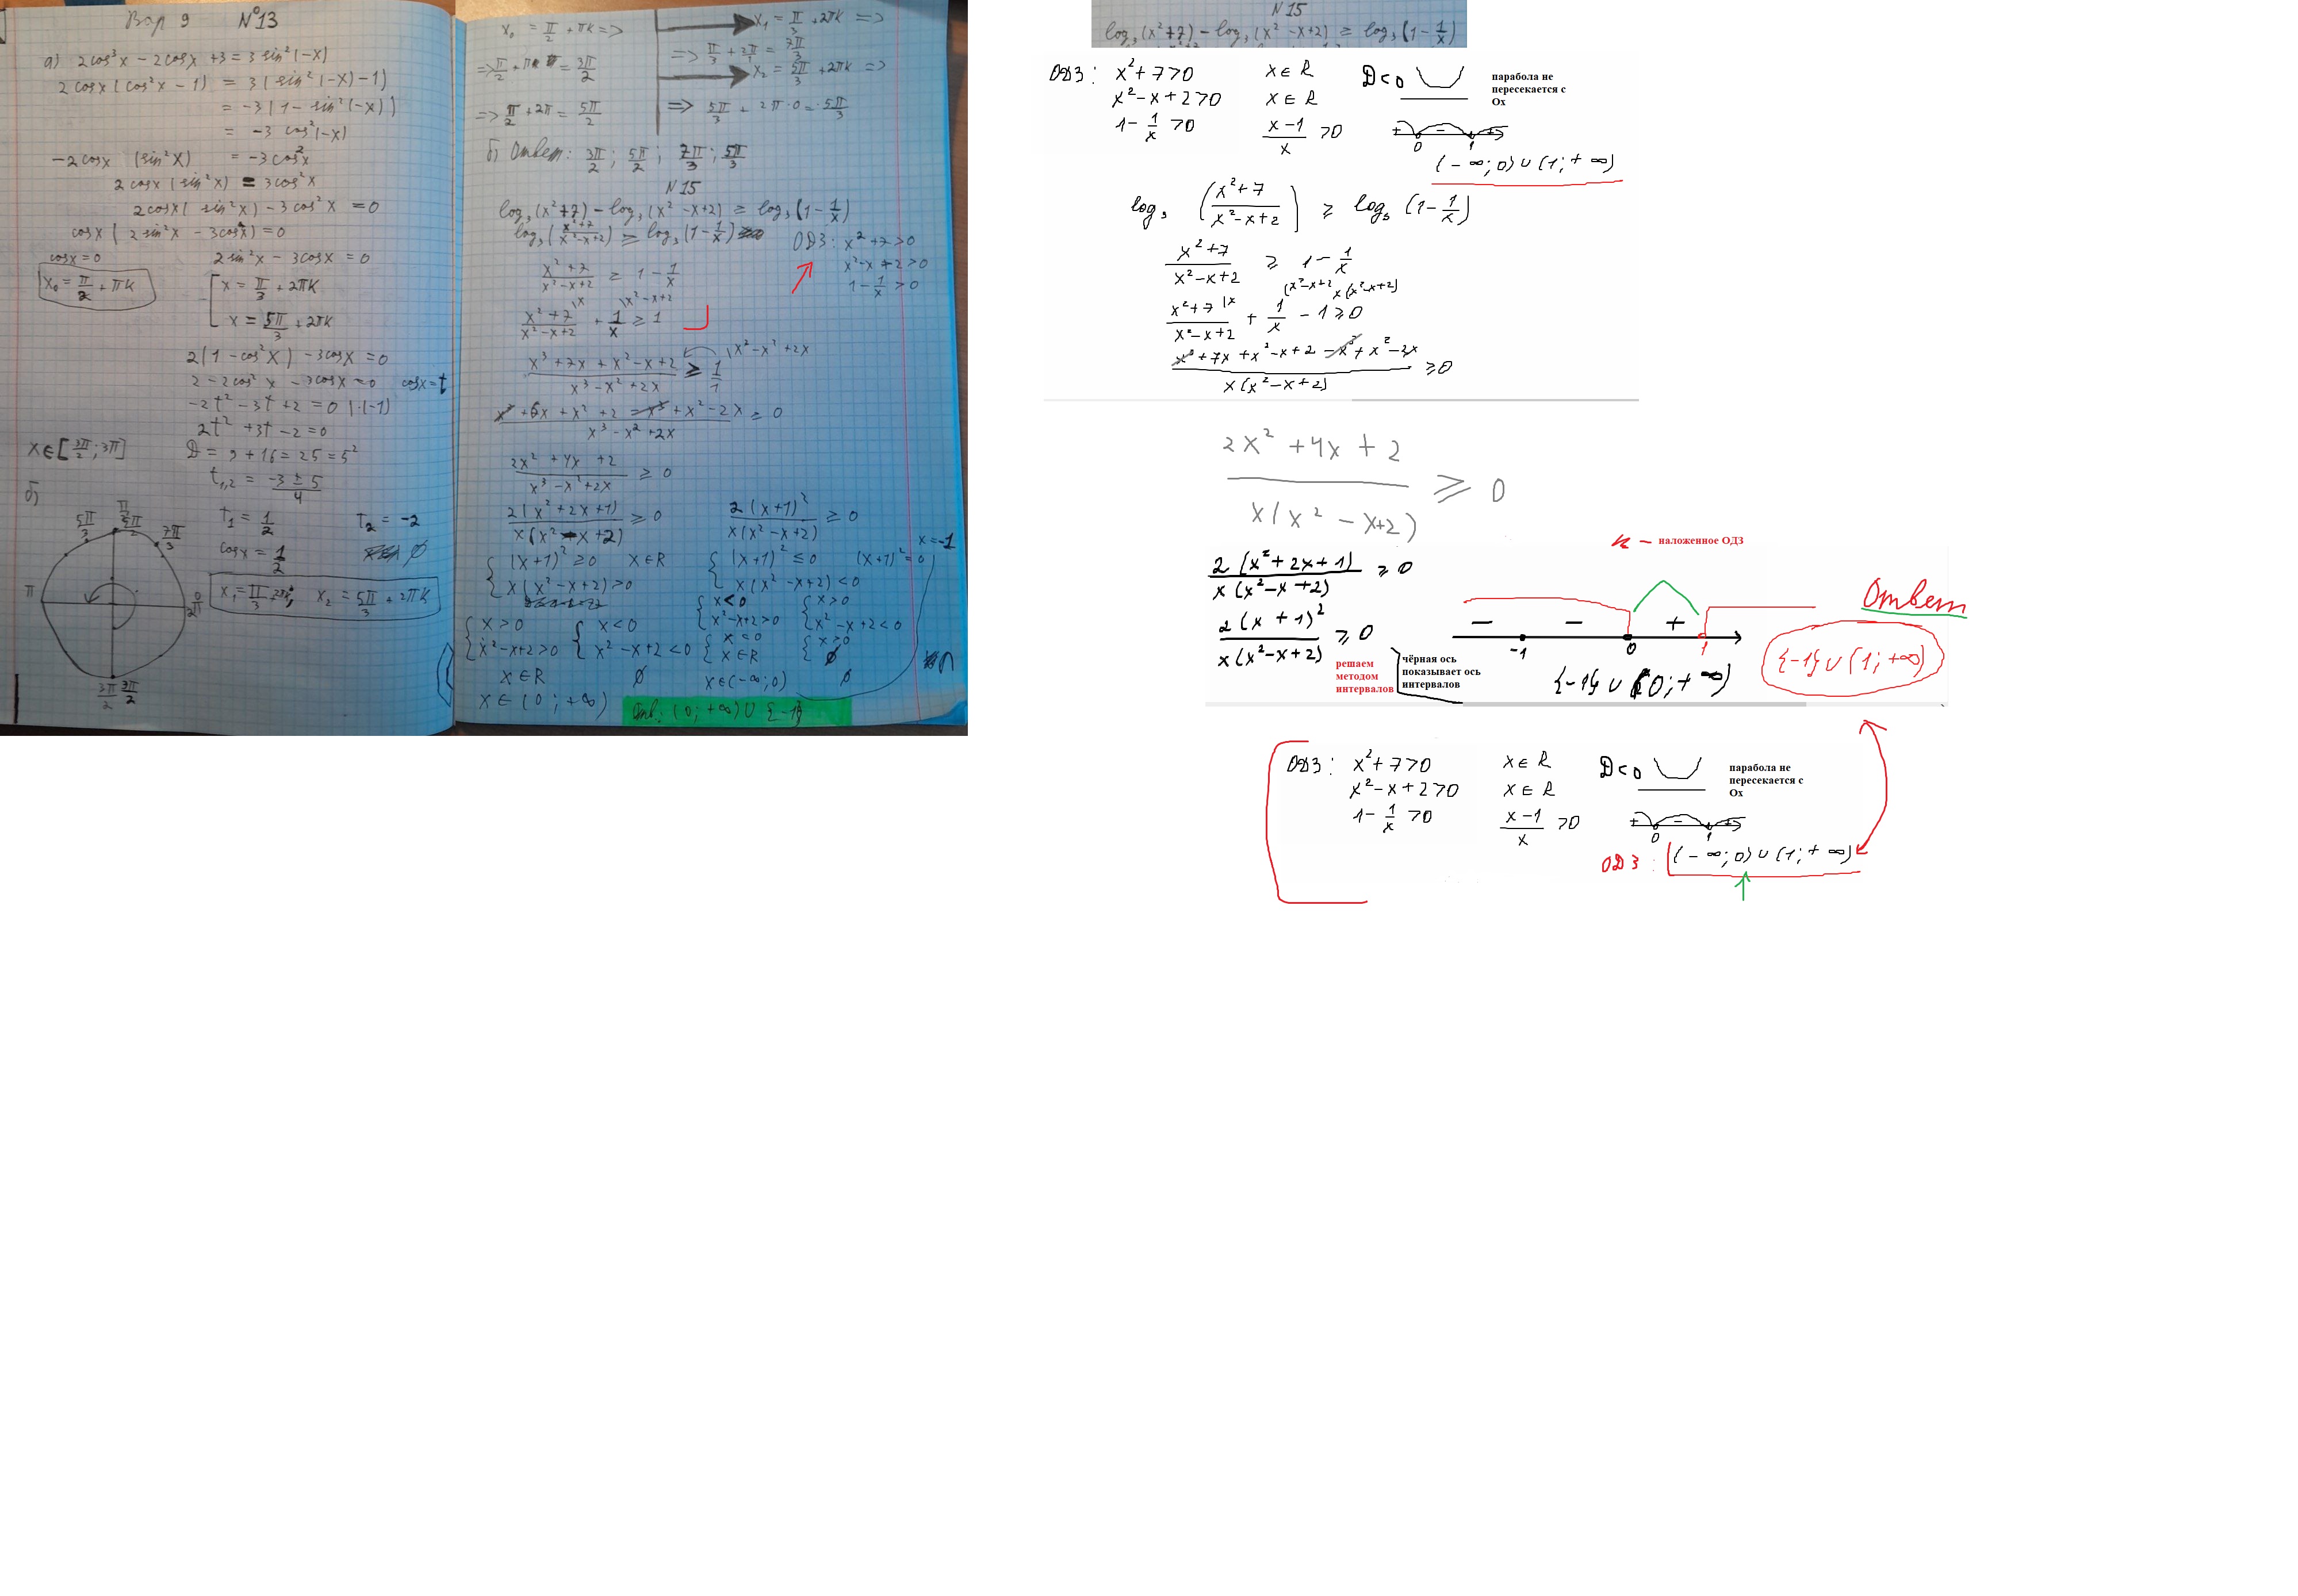 Вар 9 №13
а) 2cos³x - 2cosx + 3 = 3 sin²(-x)
2cosx(cos²x - 1) = 3(sin²(-x) - 1)
= -3(1 - sin²(-x))
= -3 cos²(-x)
-2cosx (sin²x) = -3cos²x
2cosx(sin²x) = 3cos²x
2cosx(sin²x) - 3cos²x = 0
cosx(2sin²x - 3cosx) = 0
cosx = 0 2sin²x - 3cosx = 0
x₀ = π/2 + πk
x = π/3 + 2πk
x = 5π/3 + 2πk
2(1 - cos²x) - 3cosx = 0
2 - 2cos²x - 3cosx = 0 cosx = t
-2t² - 3t + 2 = 0 |·(-1)
2t² + 3t - 2 = 0
x∈[3π/2; 3π] D = 9 + 16 = 25 = 5²
t₁,₂ = (-3 ± 5)/4
б)
T₁ = 1/2 T₂ = -2
cosx = 1/2 ∅
x₁ = π/3 + 2πk; x₂ = 5π/3 + 2πk
5π/3 π/2 5π/2 7π/3
π 0 2π
3π/2 3π/2
x₀ = π/2 + πk =>
=> π/2 + πk = 3π/2
=> π/2 + 2π = 5π/2
x₁ = π/3 + 2πk =>
=> π/3 + 2π/1 = 7π/3
x₂ = 5π/3 + 2πk =>
=> 5π/3 + 2π·0 = 5π/3
б) Ответ: 3π/2; 5π/2; 7π/3; 5π/3
N15
log₃(x²+7) - log₃(x² - x+2) ≥ log₃(1 - 1/x)
log₃((x²+7)/(x²-x+2)) ≥ log₃(1 - 1/x)
ОДЗ: x² + 7 > 0
x² - x + 2 > 0
1 - 1/x > 0
(x² + 7)/(x² - x + 2) ≥ 1 - 1/x
(x² + 7)/(x² - x + 2) \x + 1/x \x² - x + 2 ≥ 1
(x³ + 7x + x² - x + 2)/(x³ - x² + 2x) ≥ 1/1 \x³ - x² + 2x
(x³ + 6x + x² + 2 - x³ + x² - 2x)/(x³ - x² + 2x) ≥ 0
(2x² + 4x + 2)/(x³ - x² + 2x) ≥ 0
2(x² + 2x + 1)/(x(x² - x + 2)) ≥ 0 2(x+1)²/(x(x² - x + 2)) ≥ 0
{ (x+1)² ≥ 0 x∈R { (x+1)² ≤ 0 (x+1)² = 0 x = -1
x(x² - x + 2) > 0 x(x² - x + 2) < 0
{ x < 0 { x > 0
x² - x + 2 > 0 x² - x + 2 < 0
{ x > 0 { x < 0 { x < 0 { x > 0
x² - x + 2 > 0 x² - x + 2 < 0 x∈R ∅
x∈R ∅ x∈(-∞; 0) ∅
x∈(0; +∞)
Отв: (0; +∞) ∪ {-1}
N 15
log₃(x²+7) - log₃(x² - x+2) ≥ log₃(1 - 1/x)
ОДЗ: x² + 7 > 0 x∈R D < 0
x² - x + 2 > 0 x∈R
1 - 1/x > 0 (x-1)/x > 0
парабола не
пересекается с
Ох
+ - +
0 1
(-∞; 0) ∪ (1; +∞)
log₃((x²+7)/(x²-x+2)) ≥ log₃(1 - 1/x)
(x²+7)/(x²-x+2) ≥ 1 - 1/x
(x²+7)/(x²-x+2) |x + 1/x (x²-x+2 - 1 x(x²-x+2) ≥ 0
(x³ + 7x + x² - x + 2 - x³ + x² - 2x)/(x(x² - x + 2)) ≥ 0
(2x² + 4x + 2)/(x(x² - x+2)) ≥ 0
– наложенное ОДЗ
2(x² + 2x + 1)/(x(x² - x + 2)) ≥ 0
2(x + 1)²/(x(x² - x + 2)) ≥ 0
решаем
методом
интервалов
чёрная ось
показывает ось
интервалов
- - +
-1 0 1
{-1} ∪ (0; +∞)
Ответ
{-1} ∪ (1; +∞)
ОДЗ: x² + 7 > 0 x∈R D < 0
x² - x + 2 > 0 x∈R
1 - 1/x > 0 (x-1)/x > 0
парабола не
пересекается с
Ох
+ - +
0 1
ОДЗ: (-∞; 0) ∪ (1; +∞)